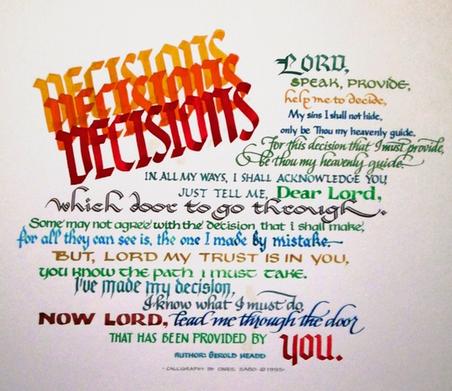 DECISIONS
DECISIONS
DECISIONS
LORD,
SPEAK, PROVIDE,
help me to decide,
My sins I shall not hide,
only be Thou my heavenly guide.
For this decision that I must provide,
& be thou my heavenly guide.
IN ALL MY WAYS, I SHALL ACKNOWLEDGE YOU
JUST TELL ME, Dear Lord,
which door to go through.
Some may not agree with the decision that i shall make,
for all they can see is, the one I made by mistake.
BUT, LORD MY TRUST IS IN YOU,
you know the path i must take.
I've made my decision,
I know what I must do,
NOW LORD, lead me through the door
THAT HAS BEEN PROVIDED BY YOU.
AUTHOR: GEROLD HEADD
- CALLIGRAPHY BY CHES. SABO © 1995 -